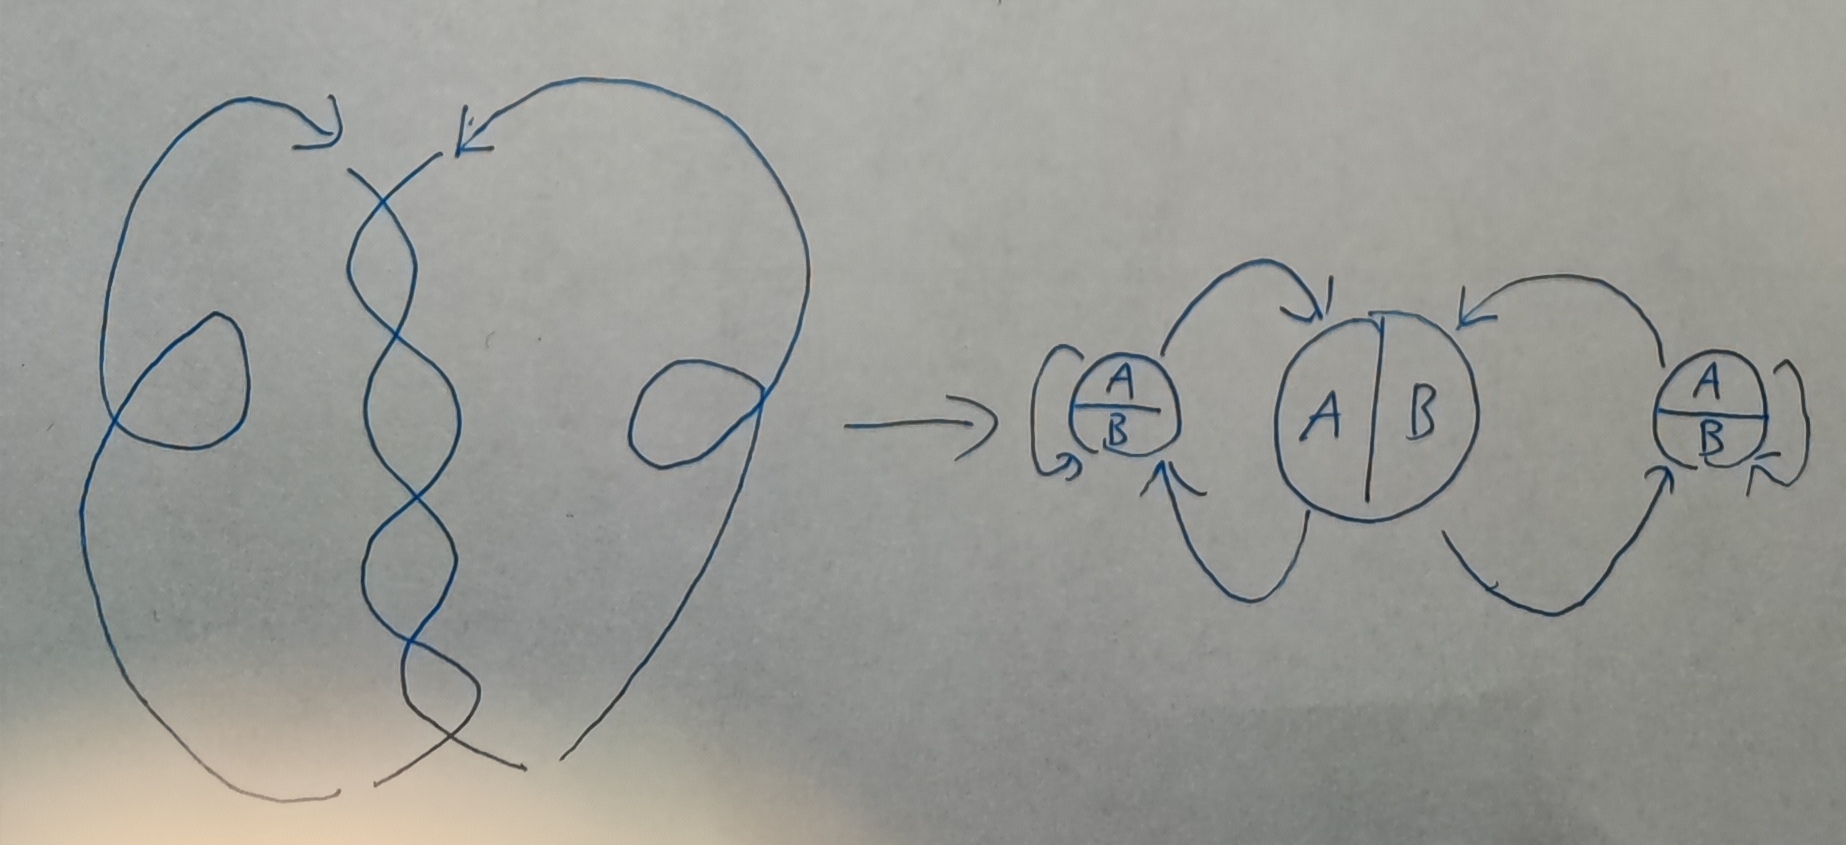 A
B
A B
A
B